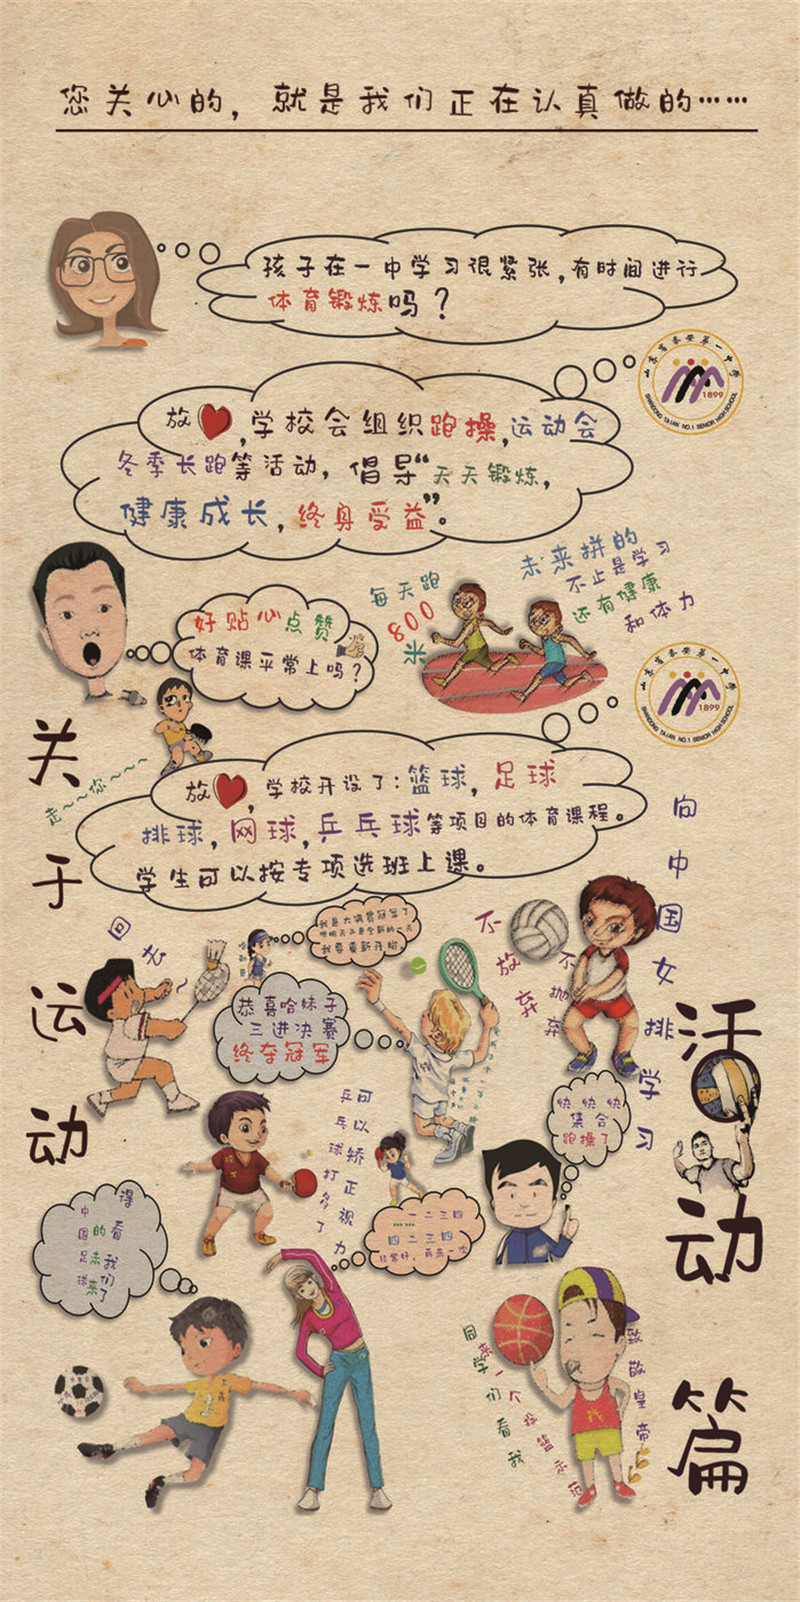 您关心的，就是我们正在认真做的……
孩子在一中学习很紧张，有时间进行
体育锻炼吗？
山东省泰安第一中学
1899
SHANDONG TAIAN NO.1 SENIOR HIGH SCHOOL
放，学校会组织跑操，运动会
冬季长跑等活动，倡导“天天锻炼，
健康成长，终身受益”。
好贴心点赞
体育课平常上吗？
每天跑
800
米
未来拼的
不止是学习
还有健康
和体力
山东省泰安第一中学
1899
SHANDONG TAIAN NO.1 SENIOR HIGH SCHOOL
走~~你~~~~
放，学校开设了：篮球，足球
排球，网球，乒乓球等项目的体育课程。
学生可以按专项选班上课。
关于运动
活动篇
向中国女排学习
不抛弃
不放弃
回去~
我是大满贯冠军了
但明天又是全新的一天
我要重新开始
恭喜哈妹子
三进决赛
终夺冠军
快快快
集合
跑操了
乒乓球打多了
可以矫正视力
一二三四
……
四二三四
非常好，再来一次
中国足球
的未来
得看我们了
同学们看我
一个投篮示范
致敬皇帝